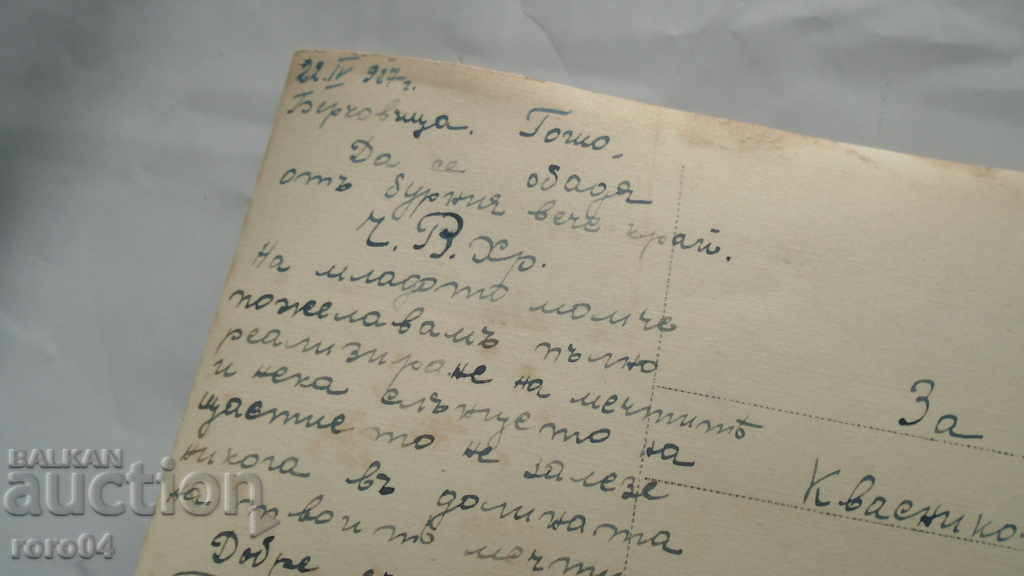 22.IV 927 г.
Берховица. Гошо,
Да се обадя
отъ бурния вече край.
Ч. В. Хр.
На младото момче
пожелавамъ пълно
реализиране на мечтитѣ
и нека слънцето на
щастието не залезе
никога въ долината
на твоитѣ мечти
Добре
За
Квасник
BALKAN
auction
roro04